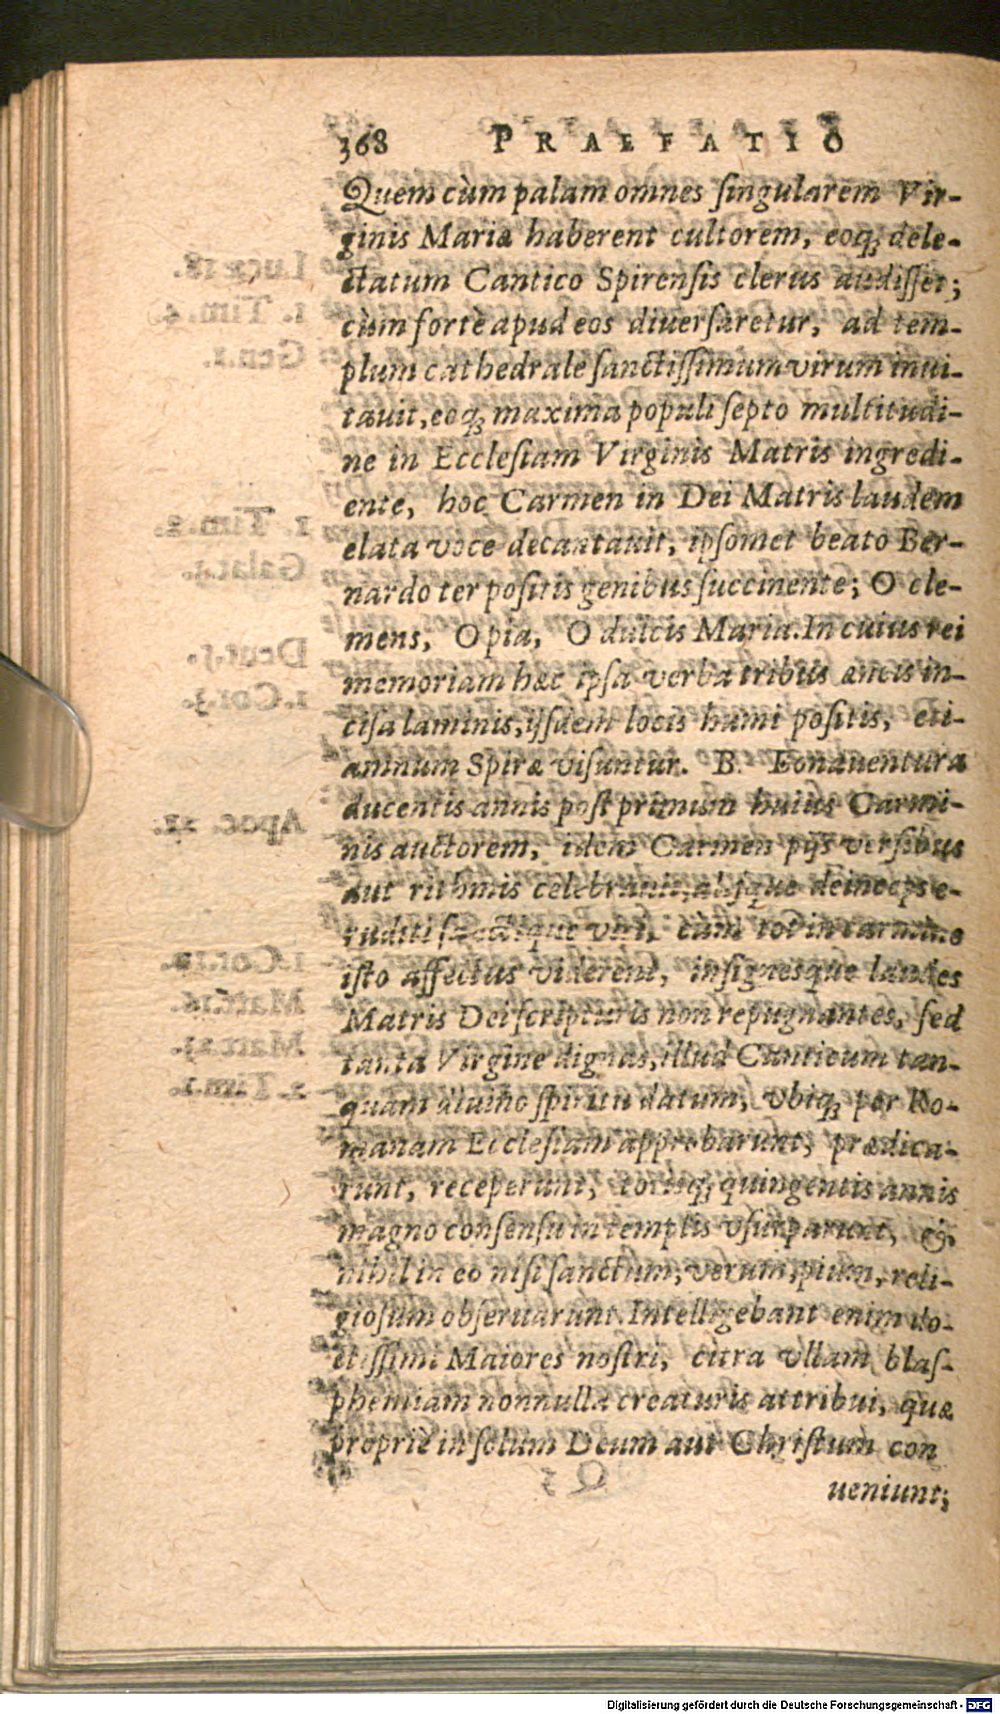 368 PRAEFATIO
Quem cùm palam omnes ſingularem Vir-
ginis Mariæ haberent cultorem, eoq́; dele-
ctatum Cantico Spirenſis clerus audiſſet;
cùm fortè apud eos diuerſaretur, ad tem-
plum cathedrale ſanctiſſimum virum inui-
tauit, eoq́; maxima populi ſepto multitudi-
ne in Eccleſiam Virginis Matris ingredi-
ente, hoc Carmen in Dei Matris laudem
elata voce decantauit, ipſomet beato Ber-
nardo ter poſitis genibus ſuccinente; O cle-
mens, O pia, O dulcis Maria. In cuius rei
memoriam hæc ipſa verba tribus æneis in-
ciſa laminis, ijſdem locis humi poſitis, eti-
amnum Spiræ viſuntur. B. Bonauentura
ducentis annis poſt primum huius Carmi-
nis auctorem, idem Carmen pijs verſibus
aut rithmis celebrauit, alijque deinceps e-
ruditi ſanctique viri, cùm tot in carmine
iſto affectus viderent, inſignesque laudes
Matris Dei ſcripturis non repugnantes, ſed
tanta Virgine dignas, illud Canticum tan-
quam diuino ſpiritu datum, vbiq́; per Ro-
manam Eccleſiam approbarunt, prædica-
runt, receperunt, totisq́; quingentis annis
magno conſenſu in templis vſurparunt, &
nihil in eo niſi ſanctum, verum, pium, reli-
gioſum obſeruarunt. Intelligebant enim do-
ctiſſimi Maiores noſtri, citra vllam blaſ-
phemiam nonnulla creaturis attribui, quæ
propriè in ſolum Deum aut Chriſtum con
ueniunt;
Digitalisierung gefördert durch die Deutsche Forschungsgemeinschaft - DFG